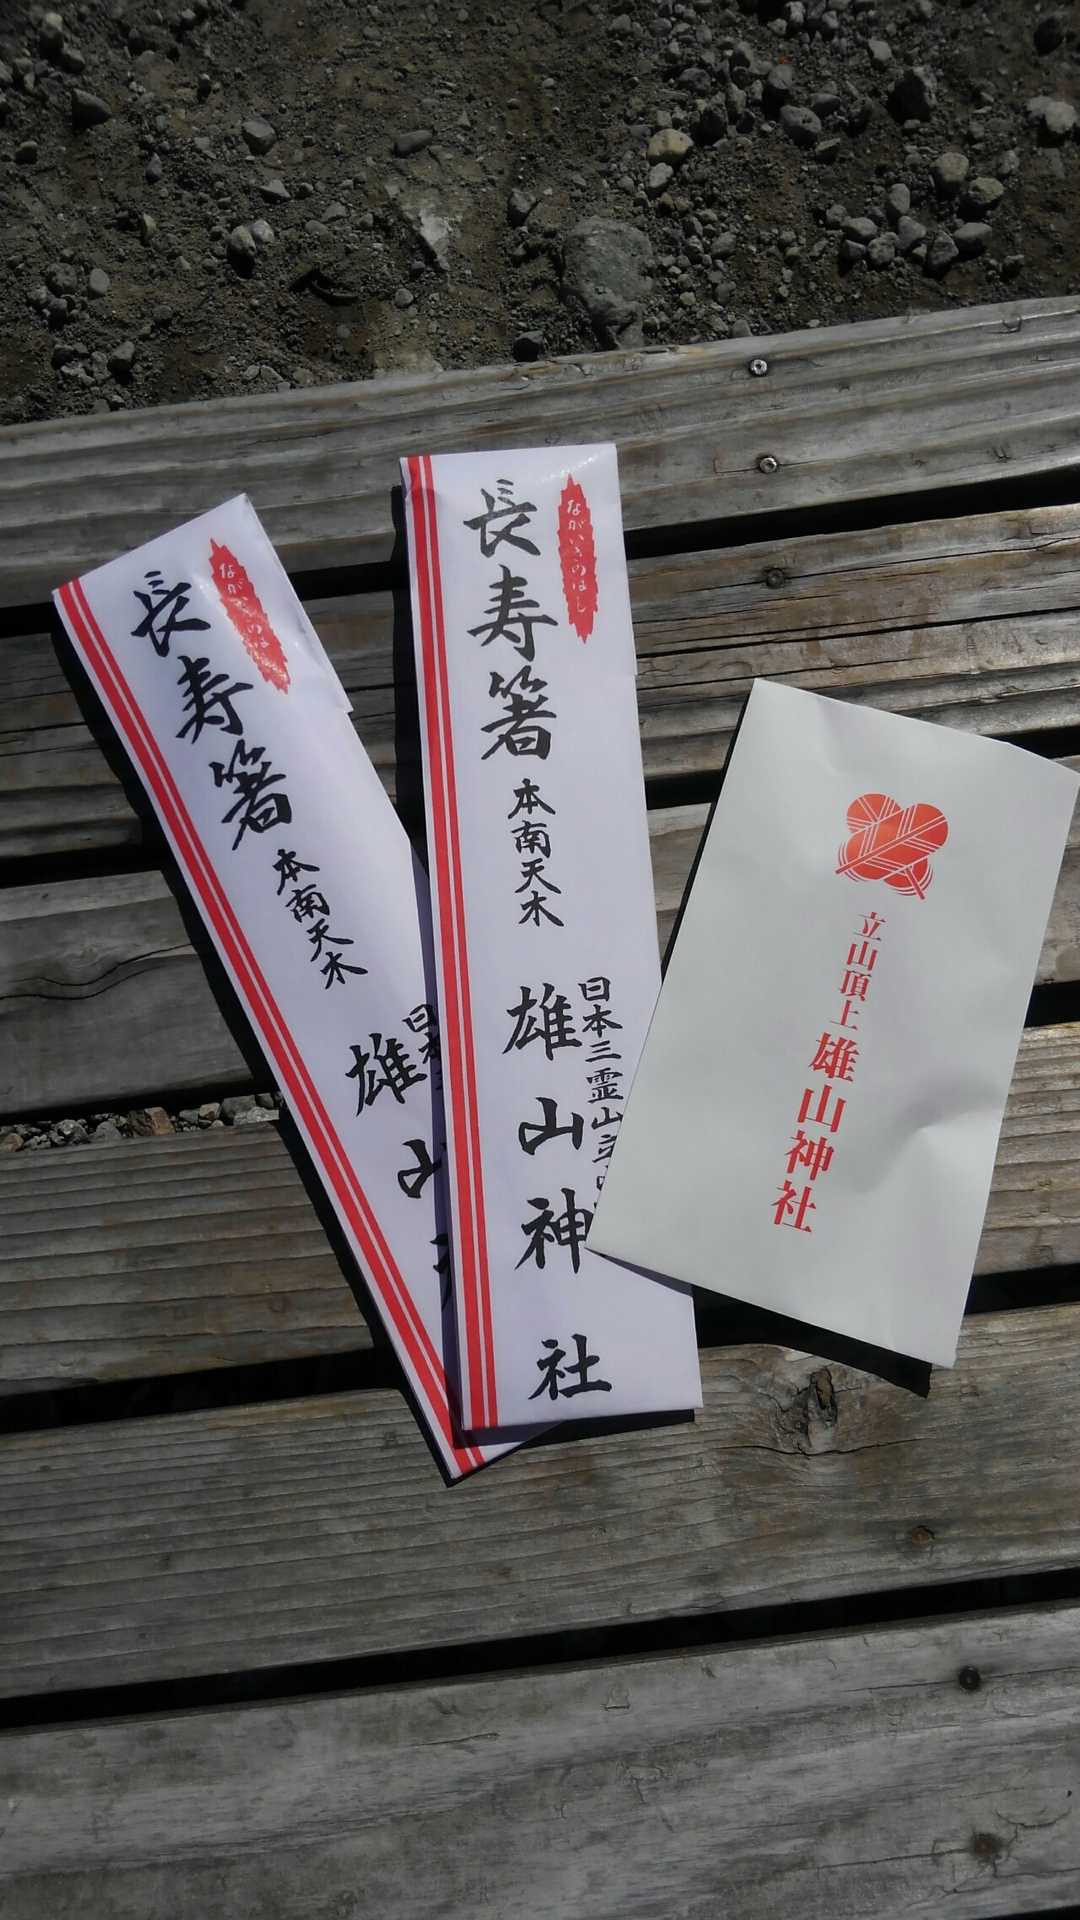 長寿箸
ながいきのはし
本南天木
日本
雄山
長寿箸
ながいきのはし
本南天木
日本三霊山立
雄山神社
立山頂上雄山神社